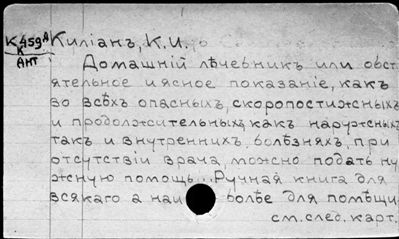 К459А Килianъ, К. И.
К
АНТ
Домашній лѣчебникъ или обст
ятельное и ясное показаніе, какъ
во всѣхъ опасныхъ, скоропостижныхъ
и продолжительныхъ, какъ наружныхъ
такъ и внутреннихъ, болѣзняхъ, при
отсутствіи врача, можно подать ну
жную помощь... Ручная книга для
всякаго а наи болѣе для помѣщи
см. след. карт.